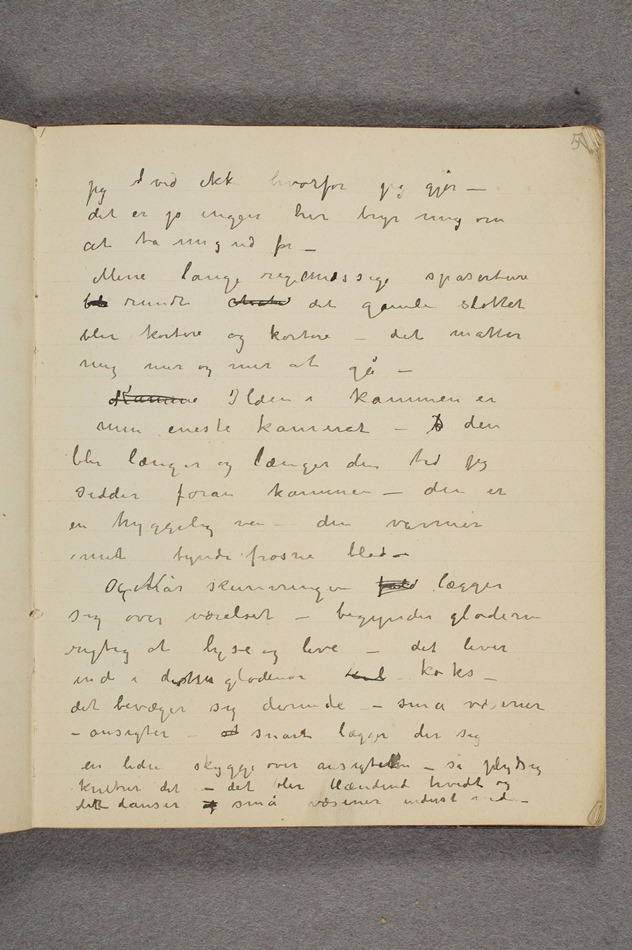 5
jeg ved ikk hvorfor jeg gjør —
det er jo ingen her bryr mig om
at ta mig ud for —
Mine lange regelmæssige spaserture
rundt det gamle slottet
blir kortere og kortere — det matter
meg mer og mer at gå —
Ilden i kaminen er
min eneste kamerat — den
blir længer og længer den tid jeg
sidder foran kaminen — den er
en hyggelig ven — den varmer
mit tynde frosne blod —
Og Når skumringen lægger
sig over værelset — begynder gløderne
rigtig at lyse og leve — det lever
ind i gløderne koks —
det bevæger sig derinde — små væsener
— ansigter — snart lægger der sig
en liden skygge over ansigterne — så
det — det blir blændende hvidt og
danser små væsener inderst inde —